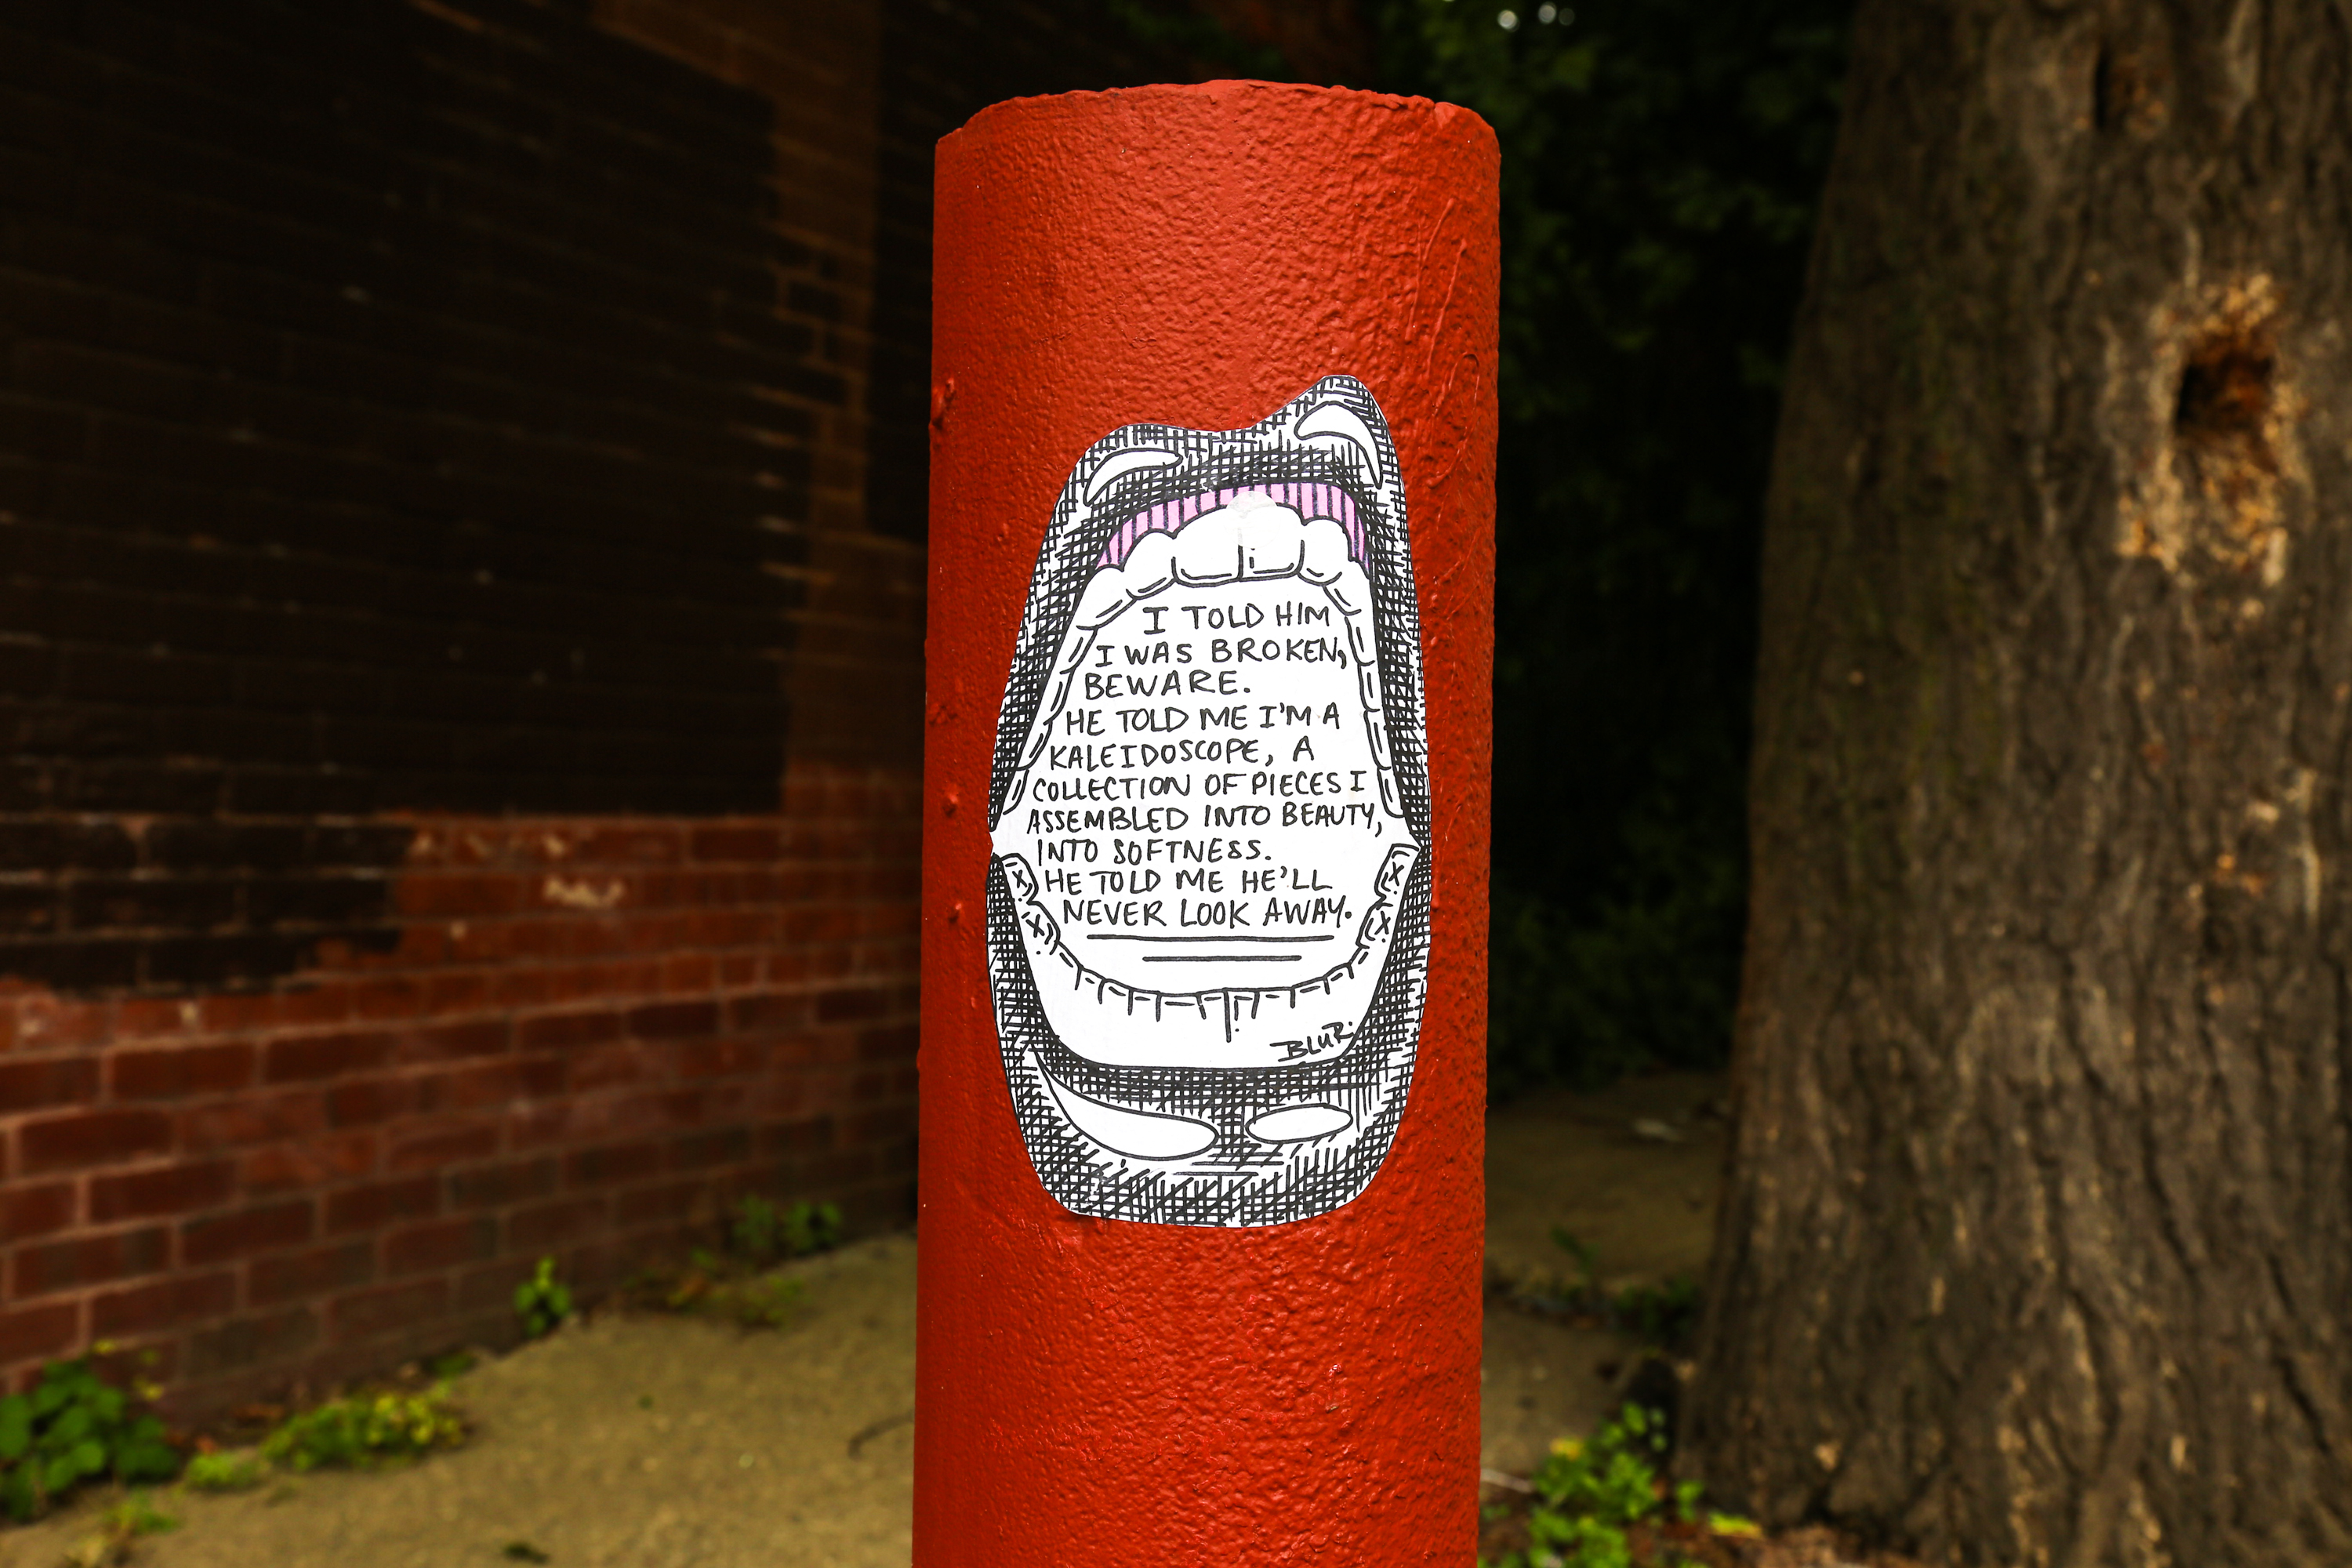 I TOLD HIM
I WAS BROKEN,
BEWARE.
HE TOLD ME I'M A
KALEIDOSCOPE, A
COLLECTION OF PIECES I
ASSEMBLED INTO BEAUTY,
INTO SOFTNESS.
HE TOLD ME HE'LL
NEVER LOOK AWAY.
BLUR.